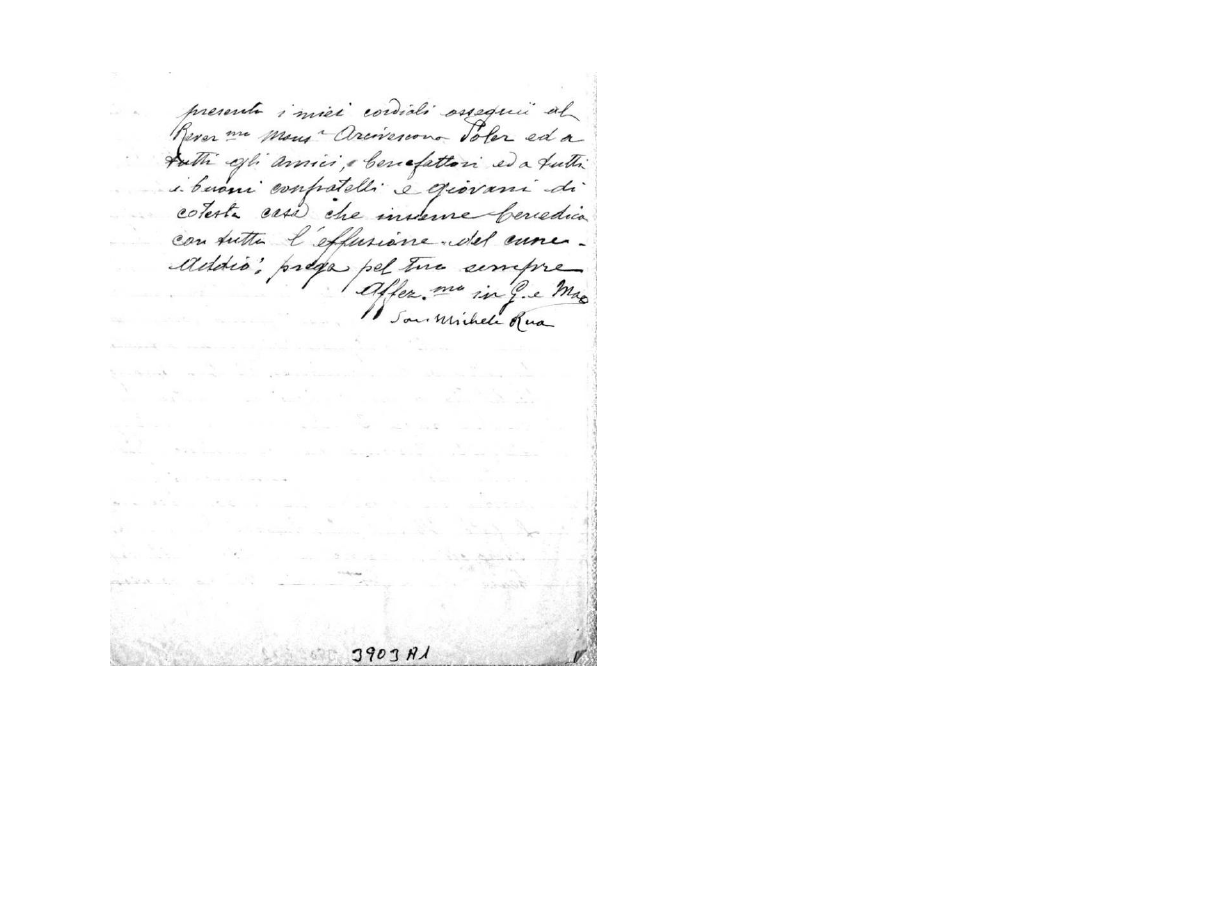 presenta i miei cordiali ossequii al
Rever.mo Mons.r Arcivescovo Soler ed a
tutti gli amici, e benefattori ed a tutti
i buoni confratelli e giovani di
cotesta casa che insieme benedico
con tutta l'effusione del cuore.
Addio; prega pel tuo sempre
Affez.mo in G. e Mao
Sac. Michele Rua
3903 A1